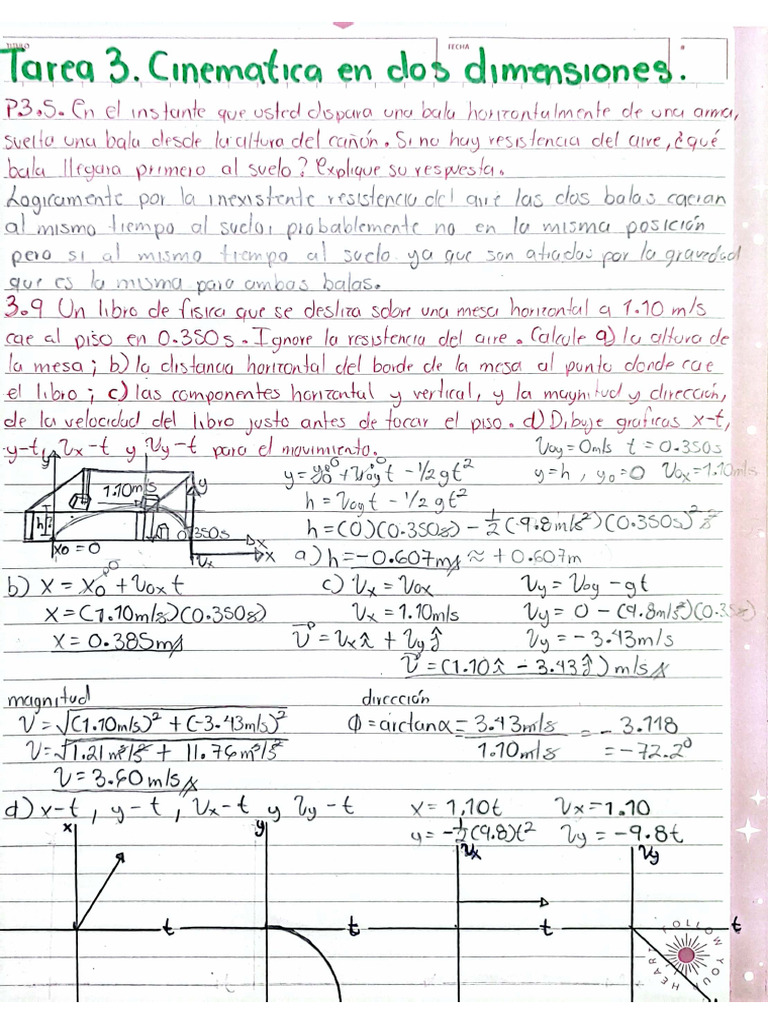 TITULO
FECHA
Tarea 3. Cinematica en dos dimensiones.
P3.5. En el instante que usted dispara una bala horizontalmente de una arma,
suelta una bala desde la altura del cañón. Si no hay resistencia del aire, ¿qué
bala llegara primero al suelo? Explique su respuesta.
Logicamente por la inexistente resistencia del aire las dos balas caerian
al mismo tiempo al suelo, probablemente no en la misma posición
pero si al mismo tiempo al suelo ya que son atraidas por la gravedad
que es la misma para ambas balas.
3.9 Un libro de fisica que se desliza sobre una mesa horizontal a 1.10 m/s
cae al piso en 0.350s. Ignore la resistencia del aire. Calcule a) la altura de
la mesa; b) la distancia horizontal del borde de la mesa al punto donde cae
el libro; c) las componentes horizontal y vertical, y la magnitud y dirección,
de la velocidad del libro justo antes de tocar el piso. d) Dibuje graficas x-t,
y-t, Vx-t y Vy-t para el movimiento.
Voy=0m/s t=0.350s
y=h, y₀=0 Vox=1.10m/s
y 1.10m/s y
h? 0.350s x
x₀=0 Vx x
y=y₀⁰+Voy⁰t-1/2gt²
h=Voyt-1/2gt²
h=(0)(0.350s)-1/2(-9.8m/s²)(0.350s)²
a) h=-0.607m ≈ +0.607m
b) x=x₀⁰+Voxt c) Vx=Vox Vy=Voy-gt
x=(1.10m/s)(0.350s) Vx=1.10m/s Vy=0-(9.8m/s²)(0.35s)
x=0.385m V=Vxî+Vyĵ Vy=-3.43m/s
V=(1.10î-3.43ĵ)m/s
magnitud dirección
V=√(1.10m/s)²+(-3.43m/s)² Φ=arctanα=3.43m/s/1.10m/s=-3.118
V=√1.21m²/s²+11.76m²/s² =-72.2⁰
V=3.60m/s
d) x-t, y-t, Vx-t y Vy-t x=1.10t Vx=1.10
y=-1/2(9.8)t² Vy=-9.8t
x y Vx Vy
t t t t
FOLLOW YOUR HEART